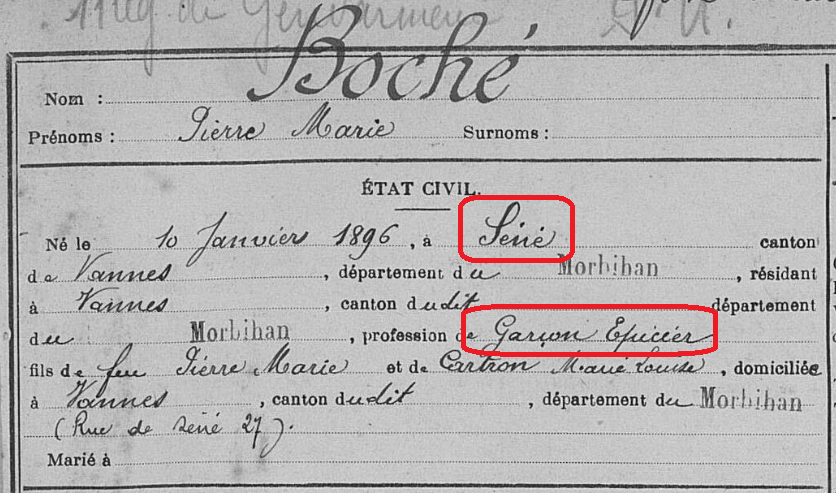 11 Rég de Gendarmerie
Boché
Nom :
Prénoms : Pierre Marie Surnoms :
ÉTAT CIVIL.
Né le 10 Janviers 1896, à Séné canton
de Vannes, département du Morbihan, résidant
à Vannes, canton dudit département
du Morbihan, profession de Garçon Epicier
fils de feu Pierre Marie et de Cartron Marie Louise, domiciliée
à Vannes, canton dudit, département du Morbihan
(Rue de Séné 27).
Marié à